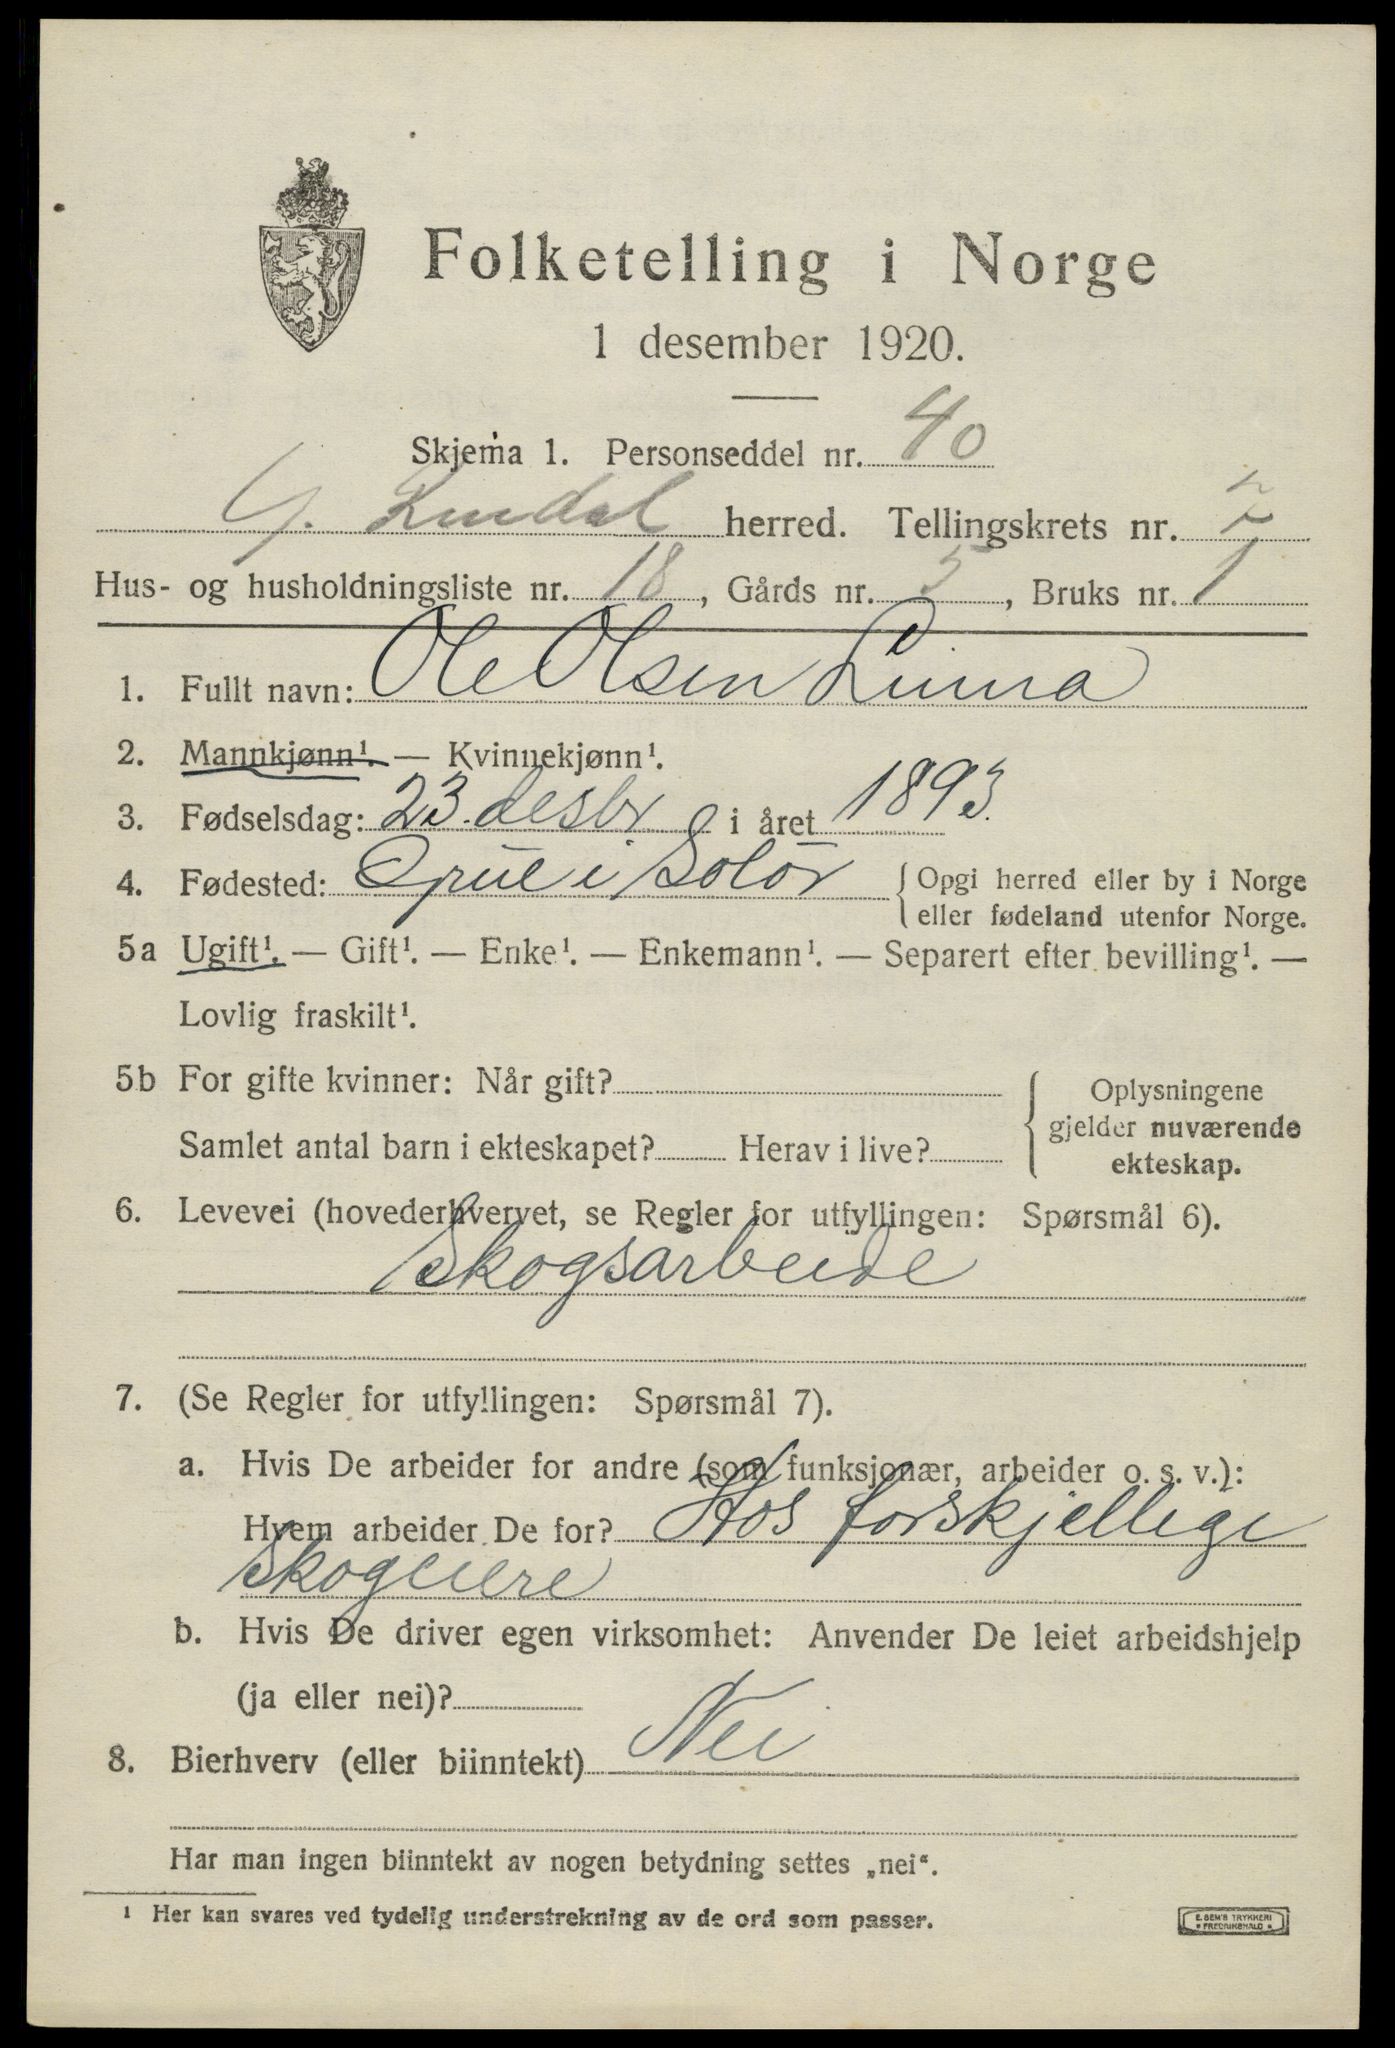 Folketelling i Norge
1 desember 1920.
Skjema 1. Personseddel nr. 40
herred. Tellingskrets nr. 7
Hus- og husholdningsliste nr. 18, Gårds nr. 5, Bruks nr. 1
1. Fullt navn: Ole Olsen Linna
2. Mannkjønn¹. — Kvinnekjønn¹.
3. Fødselsdag: 23. desbr i året 1893.
4. Fødested: Grue i Solør { Opgi herred eller by i Norge
eller fødeland utenfor Norge.
5a Ugift¹. — Gift¹. — Enke¹. — Enkemann¹. — Separert efter bevilling¹. —
Lovlig fraskilt¹.
5b For gifte kvinner: Når gift? { Oplysningene
gjelder nuværende
Samlet antal barn i ekteskapet? Herav i live?
ekteskap.
6. Levevei (hovederhvervet, se Regler for utfyllingen: Spørsmål 6).
Skogsarbeide
7. (Se Regler for utfyllingen: Spørsmål 7).
a. Hvis De arbeider for andre (som funksjonær, arbeider o. s. v.):
Hvem arbeider De for? Hos forskjellige
skogeiere
b. Hvis De driver egen virksomhet: Anvender De leiet arbeidshjelp
(ja eller nei)?
8. Bierhverv (eller biinntekt) Nei
Har man ingen biinntekt av nogen betydning settes „nei“.
¹ Her kan svares ved tydelig understrekning av de ord som passer.
E. SEM'S TRYKKERI
FREDRIKSHALD